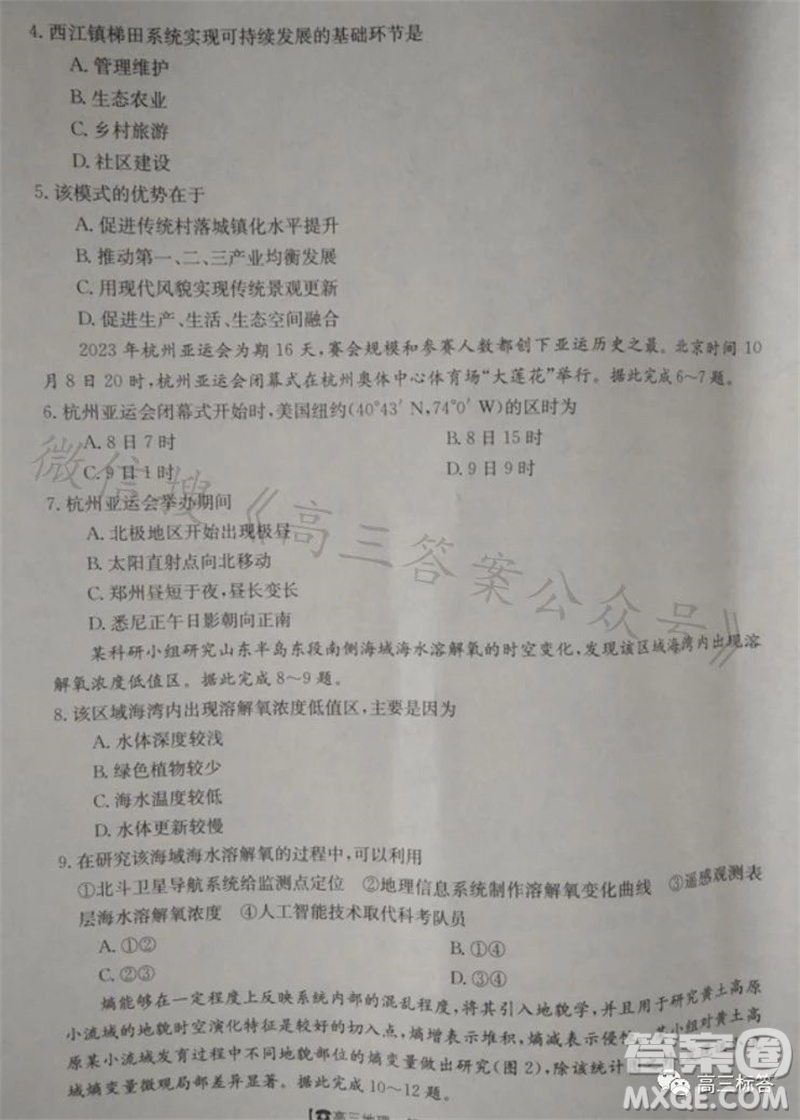 4. 西江镇梯田系统实现可持续发展的基础环节是
A. 管理维护
B. 生态农业
C. 乡村旅游
D. 社区建设
5. 该模式的优势在于
A. 促进传统村落城镇化水平提升
B. 推动第一、二、三产业均衡发展
C. 用现代风貌实现传统景观更新
D. 促进生产、生活、生态空间融合
2023年杭州亚运会为期16天，赛会规模和参赛人数都创下亚运历史之最。北京时间10
月8日20时，杭州亚运会闭幕式在杭州奥体中心体育场“大莲花”举行。据此完成6～7题。
6. 杭州亚运会闭幕式开始时，美国纽约(40°43′N，74°0′W)的区时为
A. 8日7时 B. 8日15时
C. 9日1时 D. 9日9时
7. 杭州亚运会举办期间
A. 北极地区开始出现极昼
B. 太阳直射点向北移动
C. 郑州昼短于夜，昼长变长
D. 悉尼正午日影朝向正南
某科研小组研究山东半岛东段南侧海域海水溶解氧的时空变化，发现该区域海湾内出现溶
解氧浓度低值区。据此完成8～9题。
8. 该区域海湾内出现溶解氧浓度低值区，主要是因为
A. 水体深度较浅
B. 绿色植物较少
C. 海水温度较低
D. 水体更新较慢
9. 在研究该海域海水溶解氧的过程中，可以利用
①北斗卫星导航系统给监测点定位 ②地理信息系统制作溶解氧变化曲线 ③遥感观测表
层海水溶解氧浓度 ④人工智能技术取代科考队员
A. ①② B. ①④
C. ②③ D. ③④
熵能够在一定程度上反映系统内部的混乱程度，将其引入地貌学，并且用于研究黄土高原
小流域的地貌时空演化特征是较好的切入点，熵增表示堆积，熵减表示侵蚀。某小组对黄土高
原某小流域发育过程中不同地貌部位的熵变量做出研究(图2)，除该统计
域熵变量微观局部差异显著。据此完成10～12题。
高三地理
微信搜《高三答案公众号》
答案圈
MXQE.COM
高三标答